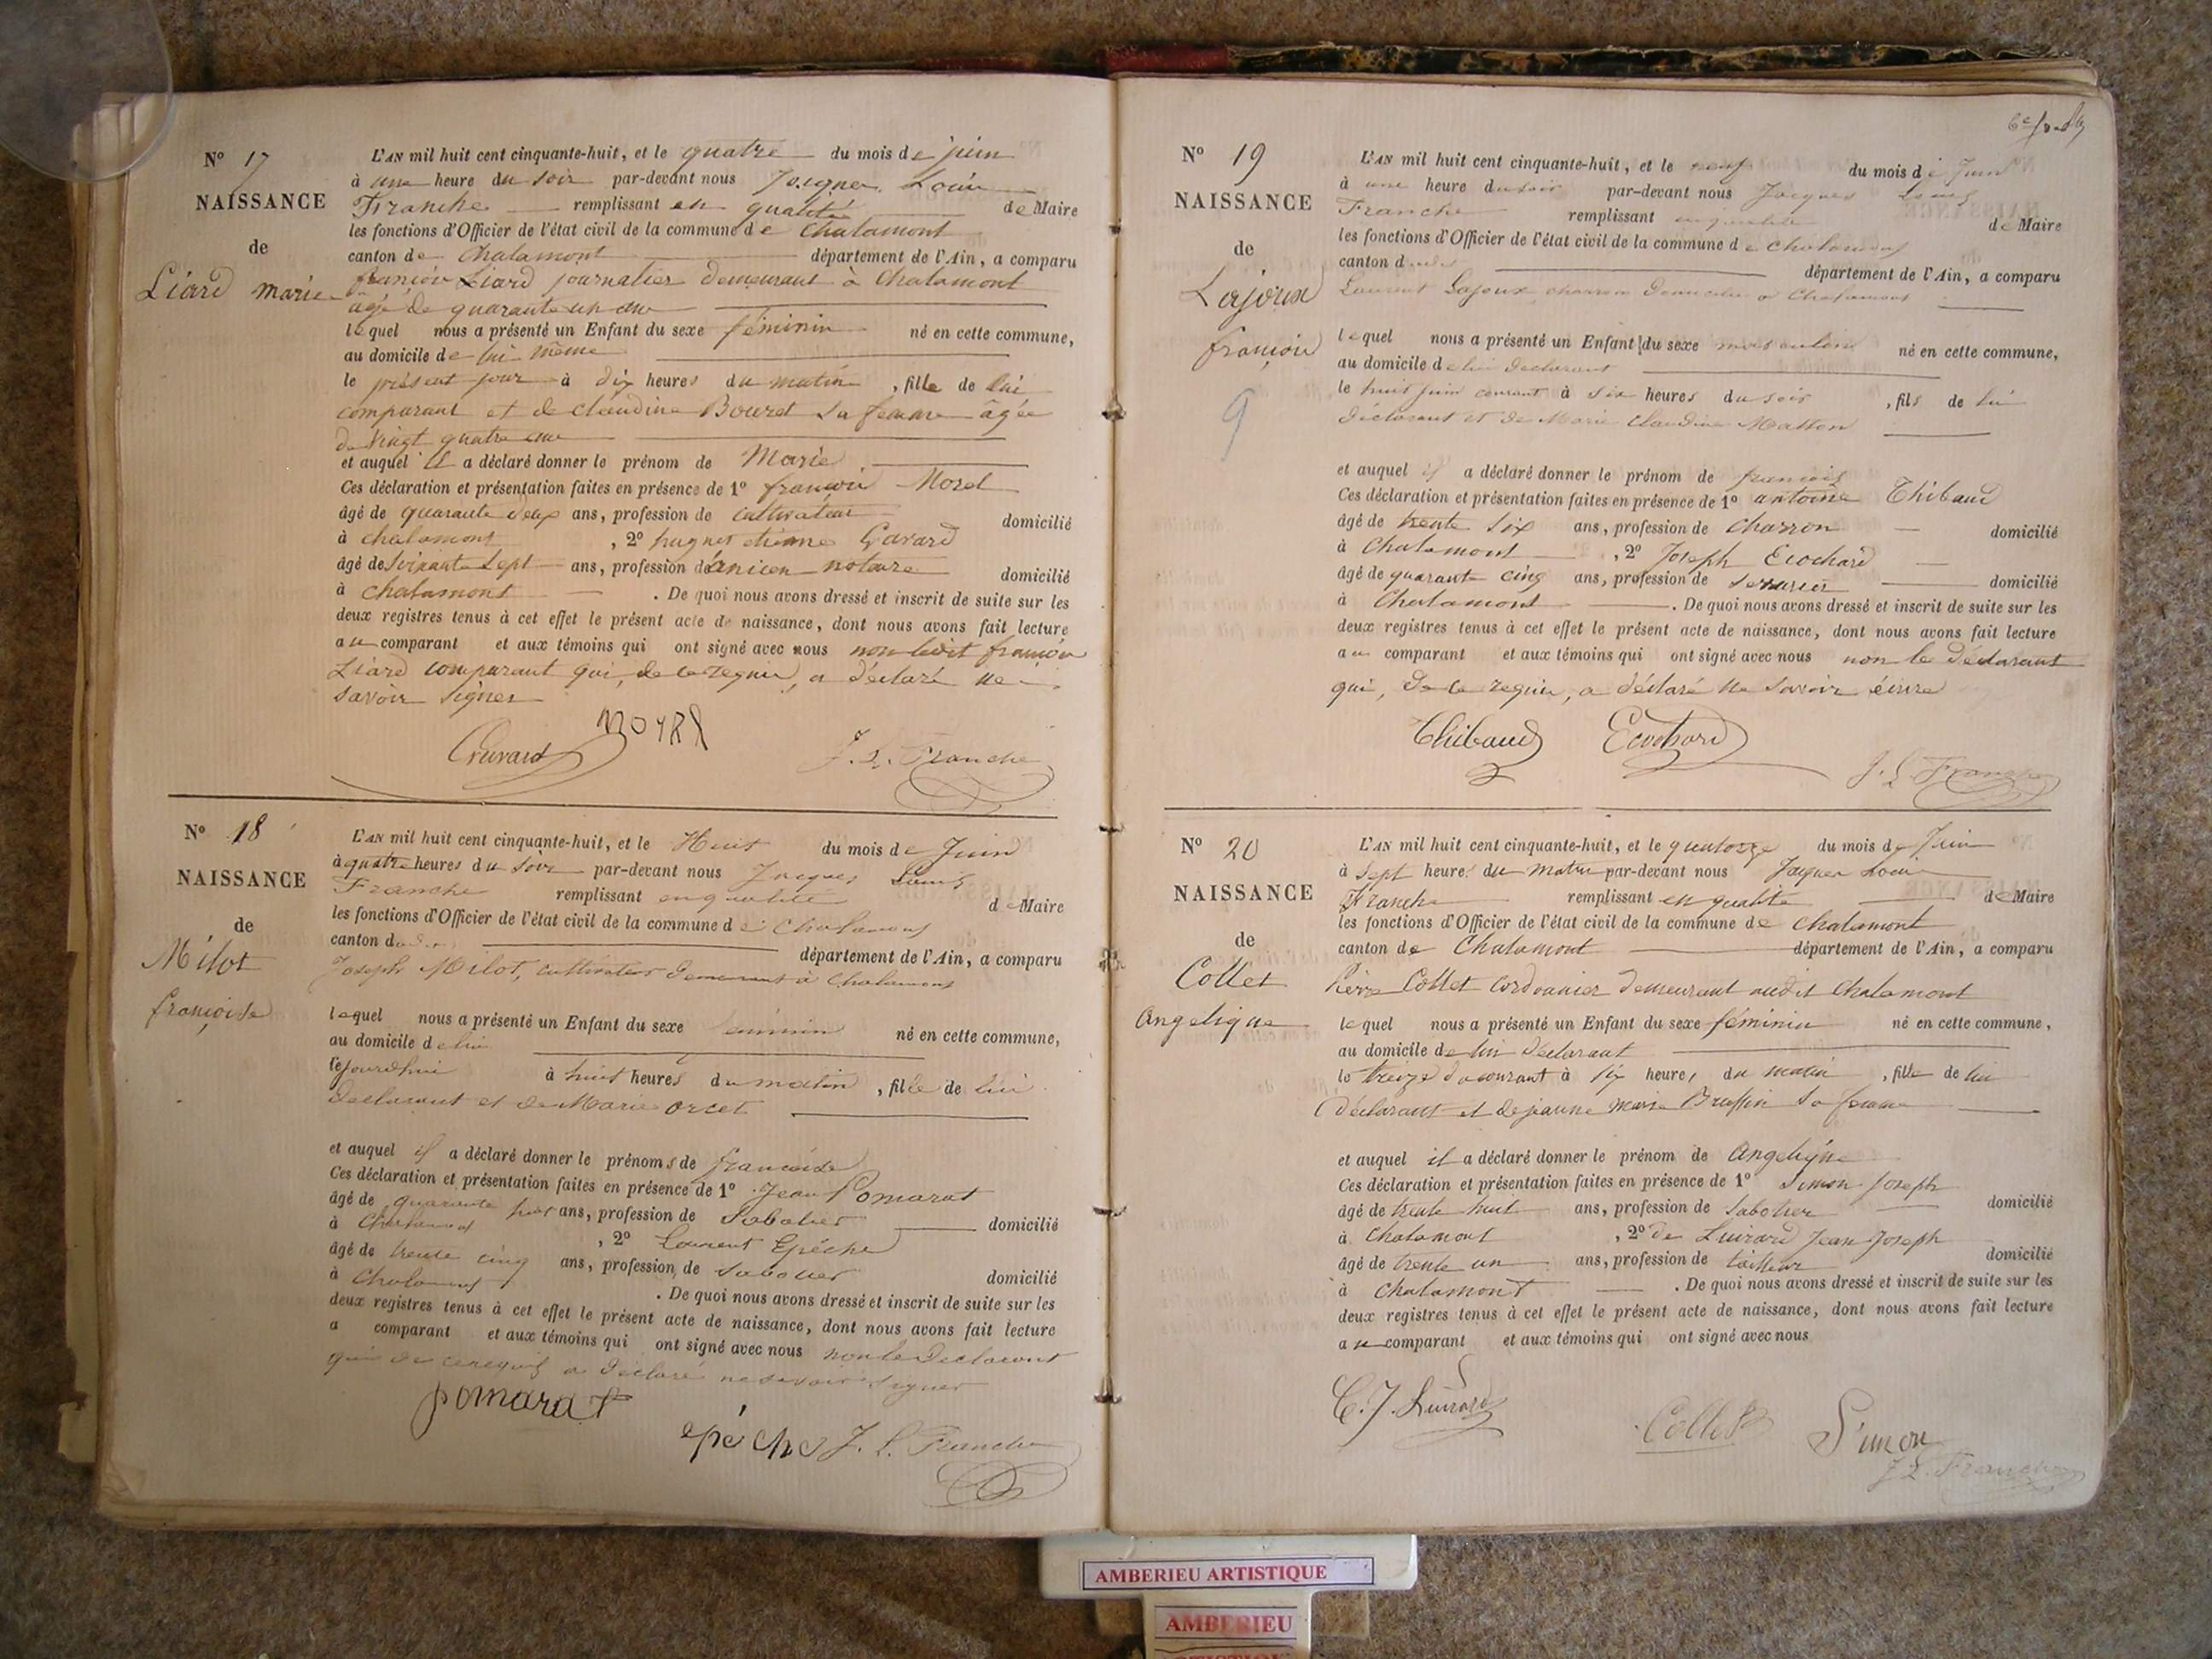 N° 17
NAISSANCE
de
Liard marie
L'AN mil huit cent cinquante-huit, et le quatre du mois de juin
à une heure du soir par-devant nous Jacques Louis
Franche remplissant en qualité de Maire
les fonctions d'Officier de l'état civil de la commune de Chalamont
canton de Chalamont département de l'Ain, a comparu
françois Liard journalier demeurant à Chalamont
âgé de quarante un ans
lequel nous a présenté un Enfant du sexe féminin né en cette commune,
au domicile de lui même
le présent jour à dix heures du matin, fille de lui
comparant et de claudine Bouret sa femme âgée
de vingt quatre ans
et auquel il a déclaré donner le prénom de Marie
Ces déclaration et présentation faites en présence de 1° françois Morel
âgé de quarante deux ans, profession de cultivateur domicilié
à chalamont, 2° hugues etienne Gavard
âgé de soixante sept ans, profession d'ancien notaire domicilié
à chalamont. De quoi nous avons dressé et inscrit de suite sur les
deux registres tenus à cet effet le présent acte de naissance, dont nous avons fait lecture
au comparant et aux témoins qui ont signé avec nous non ledit françois
Liard comparant qui, de ce requis, a déclaré ne
savoir signer
J. L. Franche
N° 18
NAISSANCE
de
Milot
françoise
L'AN mil huit cent cinquante-huit, et le Huit du mois de Juin
à quatre heures du soir par-devant nous Jacques Louis
Franche remplissant en qualité de Maire
les fonctions d'Officier de l'état civil de la commune de Chalamont
canton dudit département de l'Ain, a comparu
Joseph Milot, cultivateur demeurant à Chalamont
lequel nous a présenté un Enfant du sexe féminin né en cette commune,
au domicile de lui
cejourdhui à huit heures du matin, fille de lui
déclarant et de Marie orcet
et auquel il a déclaré donner le prénoms de françoise
Ces déclaration et présentation faites en présence de 1° Jean Pomarat
âgé de quarante huit ans, profession de Sabotier domicilié
à Chalamont, 2° Laurent Epéche
âgé de trente cinq ans, profession de Sabotier domicilié
à Chalamont. De quoi nous avons dressé et inscrit de suite sur les
deux registres tenus à cet effet le présent acte de naissance, dont nous avons fait lecture
a comparant et aux témoins qui ont signé avec nous non le déclarant
qui de ce requis a déclaré ne savoir signer
pomarat
epéche J. L. Franche
N° 19
NAISSANCE
de
Lajoux
françois
9
L'AN mil huit cent cinquante-huit, et le neuf du mois de Juin
à une heure du soir par-devant nous Jacques Louis
Franche remplissant en qualité de Maire
les fonctions d'Officier de l'état civil de la commune de Chalamont
canton dudit département de l'Ain, a comparu
Laurent Lajoux, charron domicilié à Chalamont
lequel nous a présenté un Enfant du sexe masculin né en cette commune,
au domicile de lui déclarant
le huit juin courant à six heures du soir, fils de lui
déclarant et de Marie Claudine Matton
et auquel il a déclaré donner le prénom de françois
Ces déclaration et présentation faites en présence de 1° antoine Thibaud
âgé de trente six ans, profession de charron domicilié
à Chalamont, 2° Joseph Ecochard
âgé de quarante cinq ans, profession de serrurier domicilié
à Chalamont. De quoi nous avons dressé et inscrit de suite sur les
deux registres tenus à cet effet le présent acte de naissance, dont nous avons fait lecture
au comparant et aux témoins qui ont signé avec nous non le déclarant
qui, de ce requis, a déclaré ne savoir écrire
Thibaud Ecochard
J. L. Franche
N° 20
NAISSANCE
de
Collet
Angelique
L'AN mil huit cent cinquante-huit, et le quatorze du mois de Juin
à sept heures du matin par-devant nous Jacques Louis
Franche remplissant en qualité de Maire
les fonctions d'Officier de l'état civil de la commune de Chalamont
canton de Chalamont département de l'Ain, a comparu
Pierre Collet cordonnier demeurant audit Chalamont
lequel nous a présenté un Enfant du sexe féminin né en cette commune,
au domicile de lui déclarant
le treize du courant à six heures du matin, fille de lui
déclarant et de jeanne marie Bruffin sa femme
et auquel il a déclaré donner le prénom de Angelique
Ces déclaration et présentation faites en présence de 1° Simon Joseph
âgé de trente huit ans, profession de Sabotier domicilié
à Chalamont, 2° de Luirard Jean Joseph
âgé de trente un ans, profession de tailleur domicilié
à Chalamont. De quoi nous avons dressé et inscrit de suite sur les
deux registres tenus à cet effet le présent acte de naissance, dont nous avons fait lecture
au comparant et aux témoins qui ont signé avec nous
C. J. Luirard Collet Simon
J. L. Franche
AMBERIEU ARTISTIQUE
AMBERIEU
ARTISTIQUE